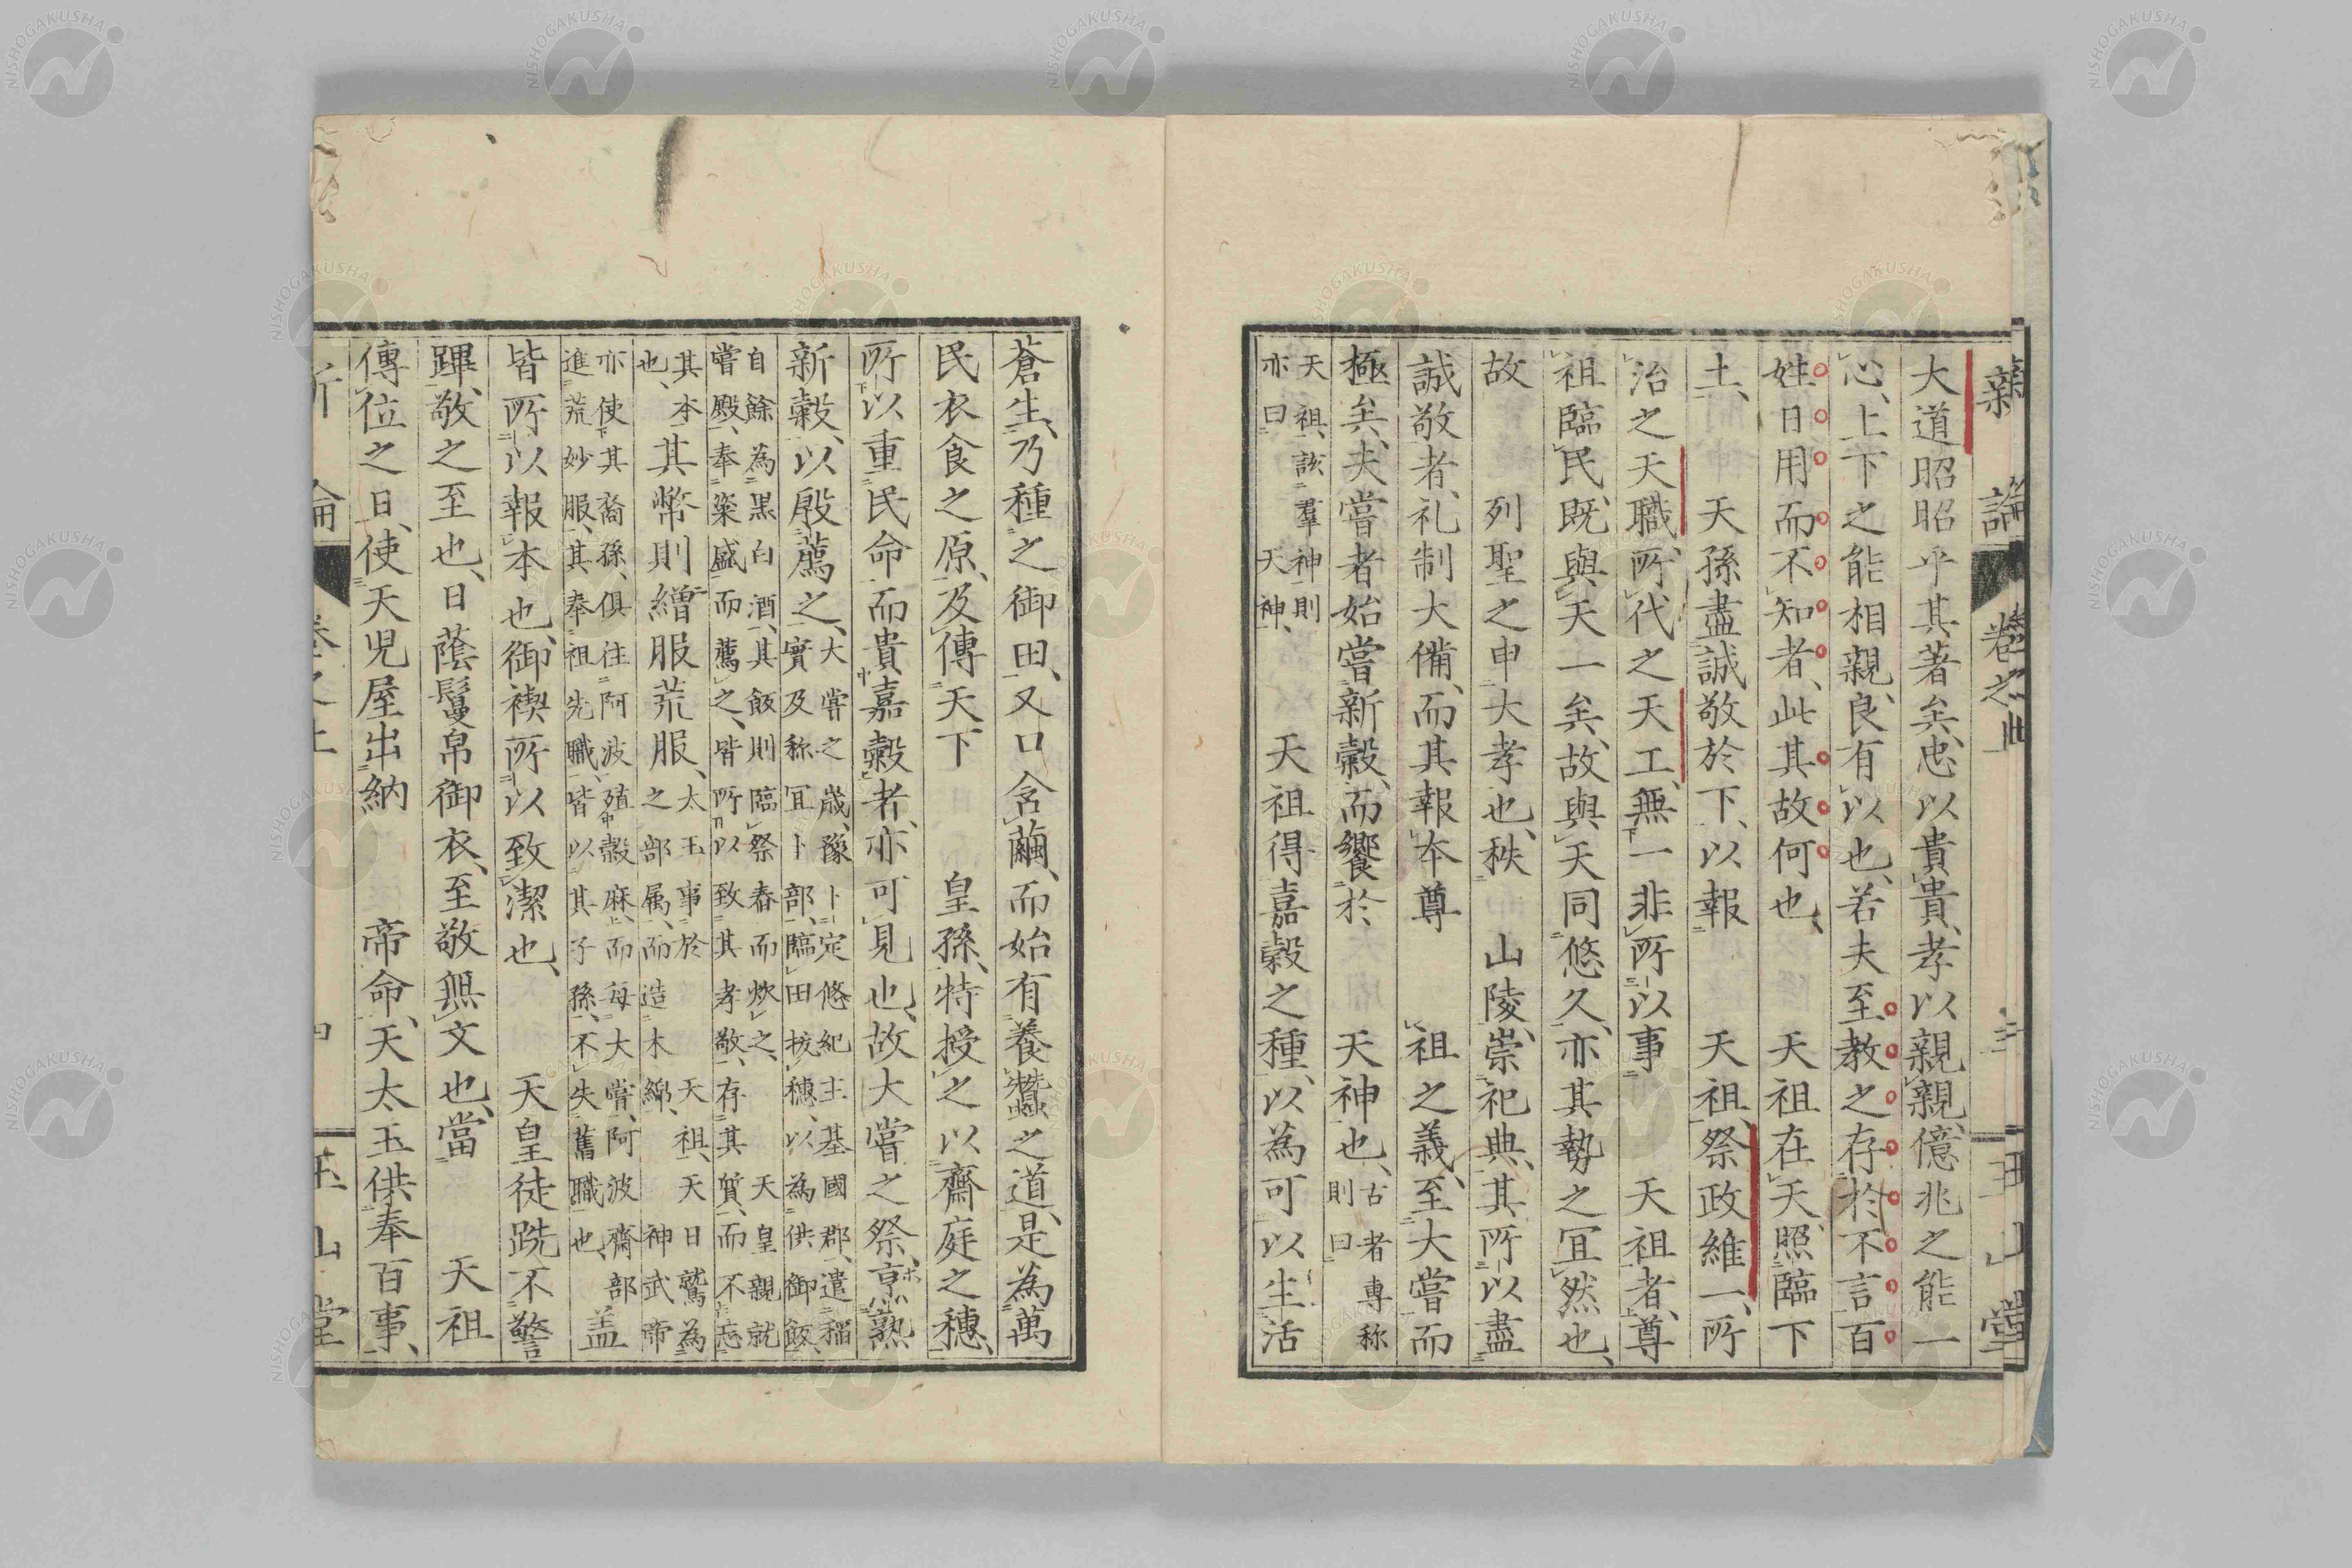 新論 卷之上 三 玉山堂
大道昭昭乎其著矣、忠以貴貴、孝以親親、億兆之能一
心、上下之能相親、良有以也、若夫至教之存於不言、百
姓日用而不知者、此其故何也、 天祖在天、照臨下
土、 天孫盡誠敬於下、以報 天祖、祭政維一、所
治之天職、所代之天工、無一非所以事 天祖者、尊
祖臨民、既與天一矣、故與天同悠久、亦其勢之冝然也、
故 列聖之申大孝也、秩 山陵、崇祀典、其所以盡
誠敬者、礼制大備、而其報本尊 祖之義、至大嘗而
極矣、夫嘗者始嘗新穀、而饗於 天神也、古者專称
則曰
天祖、該羣神則
亦曰 天神、
天祖得嘉穀之種、以為可以生活
蒼生、乃種之御田、又口含繭、而始有養蠶之道、是為萬
民衣食之原、及傳天下 皇孫、特授之以齋庭之穗、
所以重民命而貴嘉穀者、亦可見也、故大嘗之祭、烹熟
新穀、以殷薦之、
大嘗之歳、豫卜定悠紀主基國郡、遣稲
實及称冝卜部、臨田抜穗、以為供御飯、
自餘為黒白酒、其飯則臨祭舂而炊之、 天皇親就
嘗殿、奉粢盛而薦之、皆所以致其孝敬、存其質、而不忘
其本
也、
其幣則繒服荒服、
太玉事於 天祖、天日鷲為
之部属、而造木綿、 神武帝
亦使其裔孫、俱往阿波殖穀麻、而每大嘗、阿波齋部
進荒妙服、其奉祖先職、皆以其子孫、不失舊職也、
盖
皆所以報本也、御禊所以致潔也、 天皇徒跣不警
蹕、敬之至也、日蔭鬘帛御衣、至敬無文也、當 天祖
傳位之日、使天児屋出納 帝命、天太玉供奉百事、
新論 卷之上 四 玉山堂